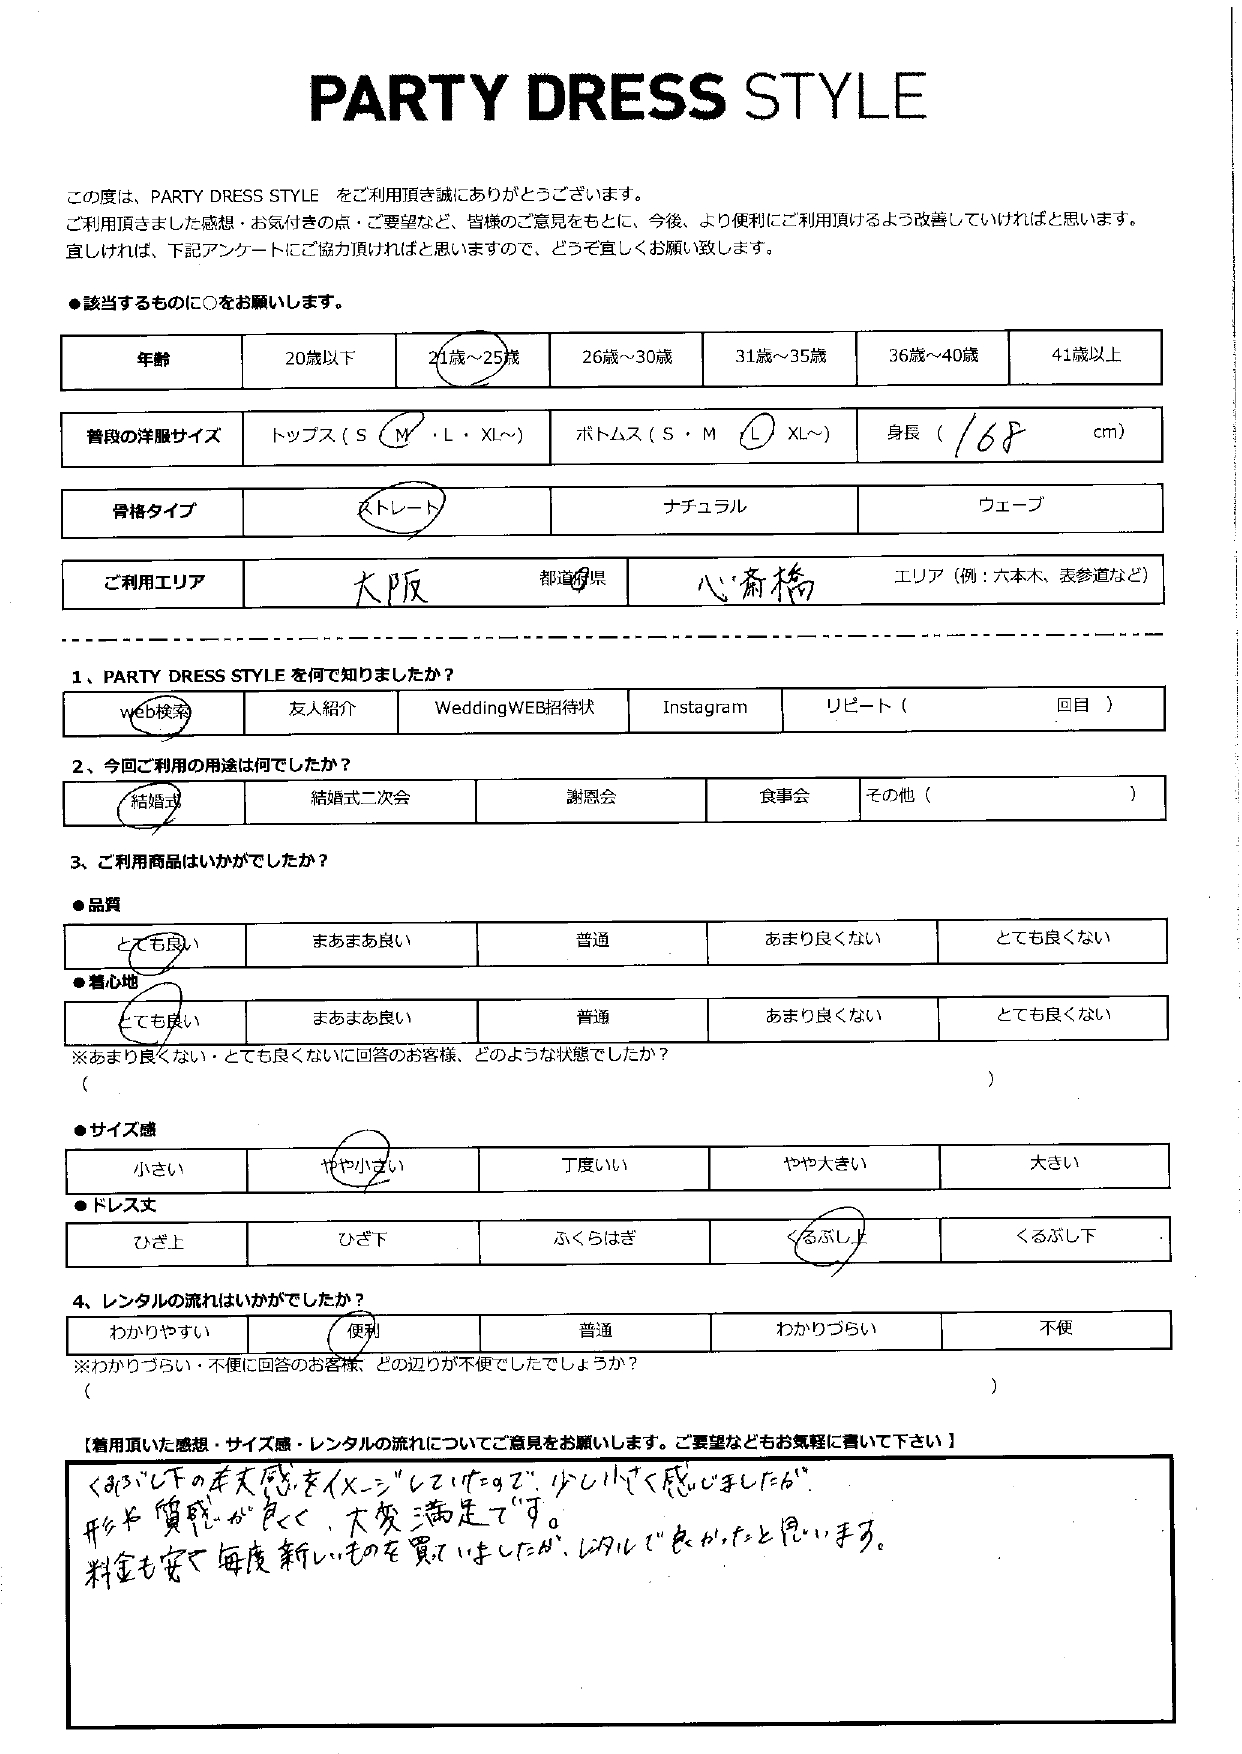 PARTY DRESS STYLE
この度は、PARTY DRESS STYLE をご利用頂き誠にありがとうございます。
ご利用頂きました感想・お気付きの点・ご要望など、皆様のご意見をもとに、今後、より便利にご利用頂けるよう改善していければと思います。
宜しければ、下記アンケートにご協力頂ければと思いますので、どうぞ宜しくお願い致します。
●該当するものに○をお願いします。
年齢 20歳以下 21歳～25歳 26歳～30歳 31歳～35歳 36歳～40歳 41歳以上
普段の洋服サイズ トップス ( S M ・L ・ XL～) ボトムス ( S ・ M L XL～) 身長 ( 168 cm)
骨格タイプ ストレート ナチュラル ウェーブ
ご利用エリア 大阪 都道府県 心斎橋 エリア（例：六本木、表参道など）
1、PARTY DRESS STYLE を何で知りましたか？
web検索 友人紹介 WeddingWEB招待状 Instagram リピート ( 回目 )
2、今回ご利用の用途は何でしたか？
結婚式 結婚式二次会 謝恩会 食事会 その他 ( )
3、ご利用商品はいかがでしたか？
●品質
とても良い まあまあ良い 普通 あまり良くない とても良くない
●着心地
とても良い まあまあ良い 普通 あまり良くない とても良くない
※あまり良くない・とても良くないに回答のお客様、どのような状態でしたか？
( )
●サイズ感
小さい やや小さい 丁度いい やや大きい 大きい
●ドレス丈
ひざ上 ひざ下 ふくらはぎ くるぶし上 くるぶし下
4、レンタルの流れはいかがでしたか？
わかりやすい 便利 普通 わかりづらい 不便
※わかりづらい・不便に回答のお客様、どの辺りが不便でしたでしょうか？
( )
【着用頂いた感想・サイズ感・レンタルの流れについてご意見をお願いします。ご要望などもお気軽に書いて下さい】
くるぶし下の丈感をイメージしていたので、少し小さく感じましたが
形や質感が良くて、大変満足です。
料金も安く毎度新しいものを買っていましたが、レンタルで良かったと思います。